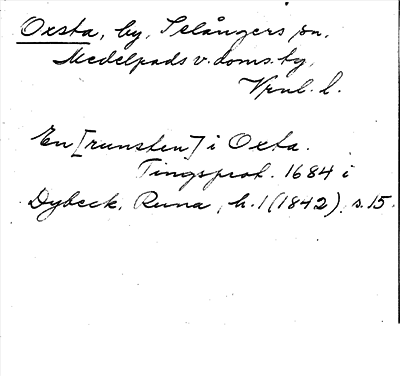 Oxsta, by, Selångers sn,
Medelpads v. doms. tg,
Vnl. l.
En [runsten] i Oxta.
Tingsprot. 1684 i
Dybeck, Runa, h. 1 (1842), s. 15.